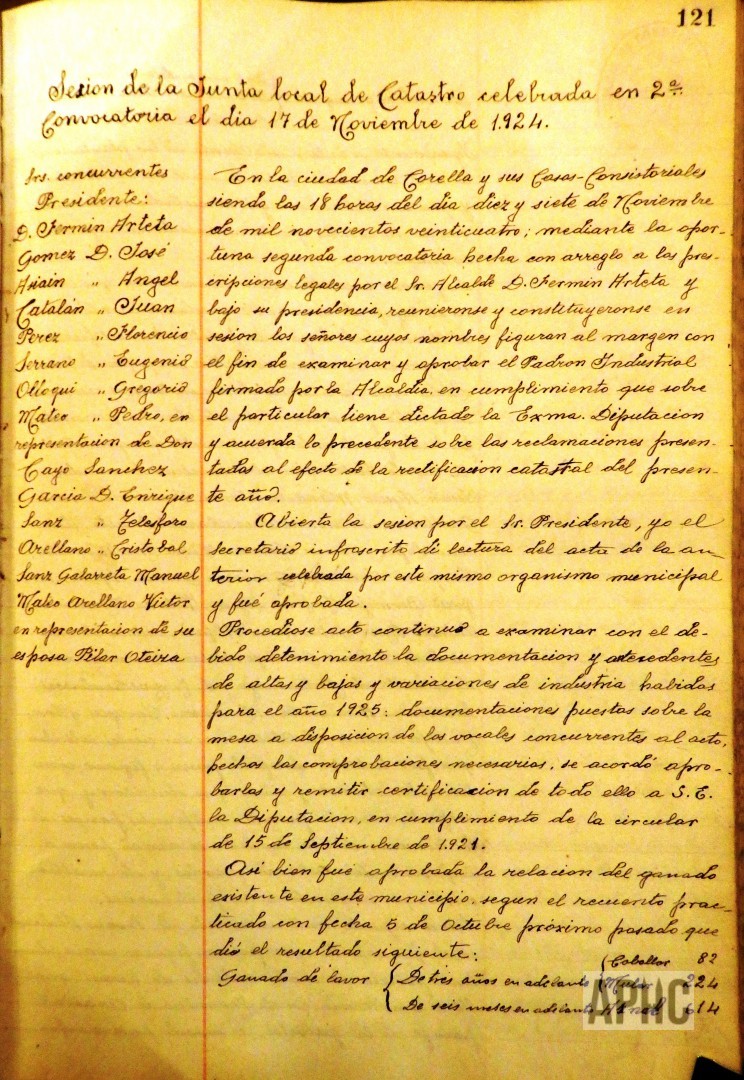 121
Sesion de la Junta local de Catastro celebrada en 2ª
Convocatoria el dia 17 de Noviembre de 1.924.
Srs. concurrentes
Presidente:
D. Fermin Arteta
Gomez D. José
Asiain " Angel
Catalán " Juan
Perez " Florencio
Serrano " Eugenio
Olloqui " Gregorio
Mateo " Pedro, en
representacion de Don
Cayo Sanchez
Garcia D. Enrique
Sanz " Telesforo
Arellano " Cristobal
Sanz Galarreta Manuel
Mateo Arellano Victor
en representacion de su
esposa Pilar Oteiza
En la ciudad de Corella y sus Casas-Consistoriales
siendo las 18 horas del dia diez y siete de Noviembre
de mil novecientos veinticuatro; mediante la opor-
tuna segunda convocatoria hecha con arreglo a las pres-
cripciones legales por el Sr. Alcalde D. Fermin Arteta y
bajo su presidencia, reunieronse y constituyeronse en
sesion los señores cuyos nombres figuran al margen con
el fin de examinar y aprobar el Padron Industrial
firmado por la Alcaldia, en cumplimiento que sobre
el particular tiene dictado la Exma. Diputacion
y acuerda lo precedente sobre las reclamaciones presen-
tadas al efecto de la rectificacion catastral del presen-
te año.
Abierta la sesion por el Sr. Presidente, yo el
secretario infrascrito di lectura del acta de la an-
terior celebrada por este mismo organismo municipal
y fué aprobada.
Procediose acto continuo a examinar con el de-
bido detenimiento la documentacion y antecedentes
de altas y bajas y variaciones de industria habidas
para el año 1925: documentaciones puestas sobre la
mesa a disposicion de los vocales concurrentes al acto,
hechas las comprobaciones necesarias, se acordó apro-
barlas y remitir certificacion de todo ello a S. E.
la Diputacion, en cumplimiento de la circular
de 15 de Septiembre de 1.921.
Asi bien fué aprobada la relacion del ganado
existente en este municipio, segun el recuento prac-
ticado con fecha 5 de Octubre próximo pasado que
dió el resultado siguiente:
Caballar 82
Ganado de lavor De tres años en adelante Mular 224
De seis meses en adelante Asnal 614
APHC